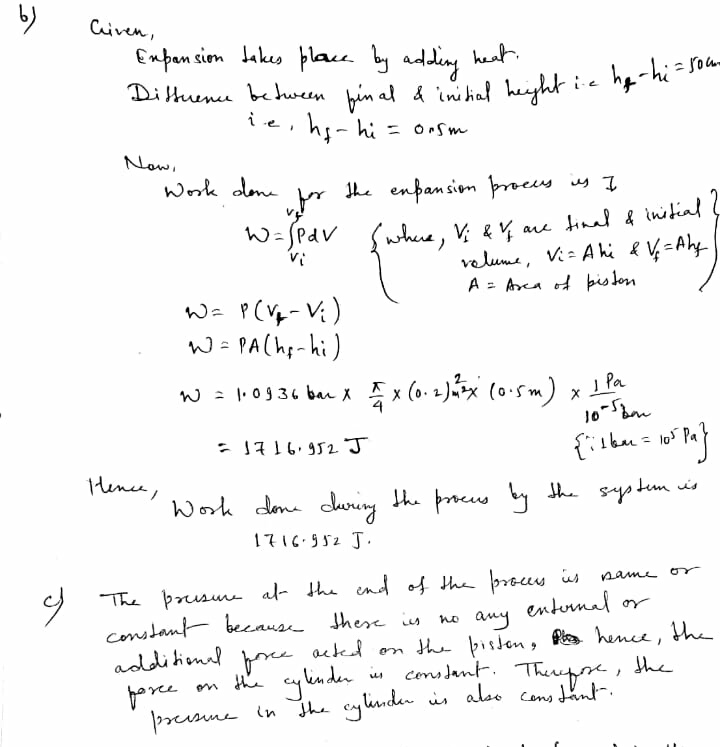 b)
Given,
Expansion takes place by adding heat.
Difference between final & initial height i.e hf-hi = 50cm
i.e, hf-hi = 0.5m
Now,
Work done for the expansion process is I
W = ∫PdV {where, Vi & Vf are final & initial
Vf
Vi
volume, Vi = Ahi & Vf = Ahf}
A = Area of piston
W = P(Vf - Vi)
W = PA(hf-hi)
W = 1.0936 bar x π/4 x (0.2)²m² x (0.5m) x 1 Pa/10⁻⁵ bar
= 1716.952 J {∵ 1bar = 10⁵ Pa}
Hence,
Work done during the process by the system is
1716.952 J.
c) The pressure at the end of the process is same or
constant because there is no any external or
additional force acted on the piston, hence, the
force on the cylinder is constant. Therefore, the
pressure in the cylinder is also constant.